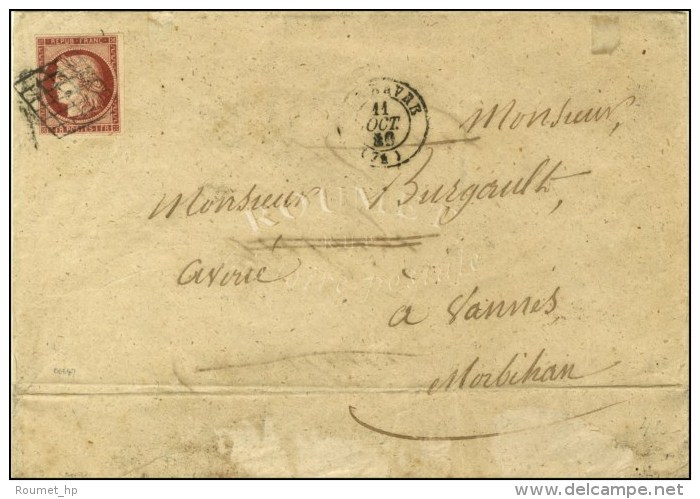 REPUB. FRANC.
11
OCT.
Monsieur,
Monsieur Burgault,
ROUMET
avoué
à Vannes
Morbihan
Roumet_hp
www.delcampe.net